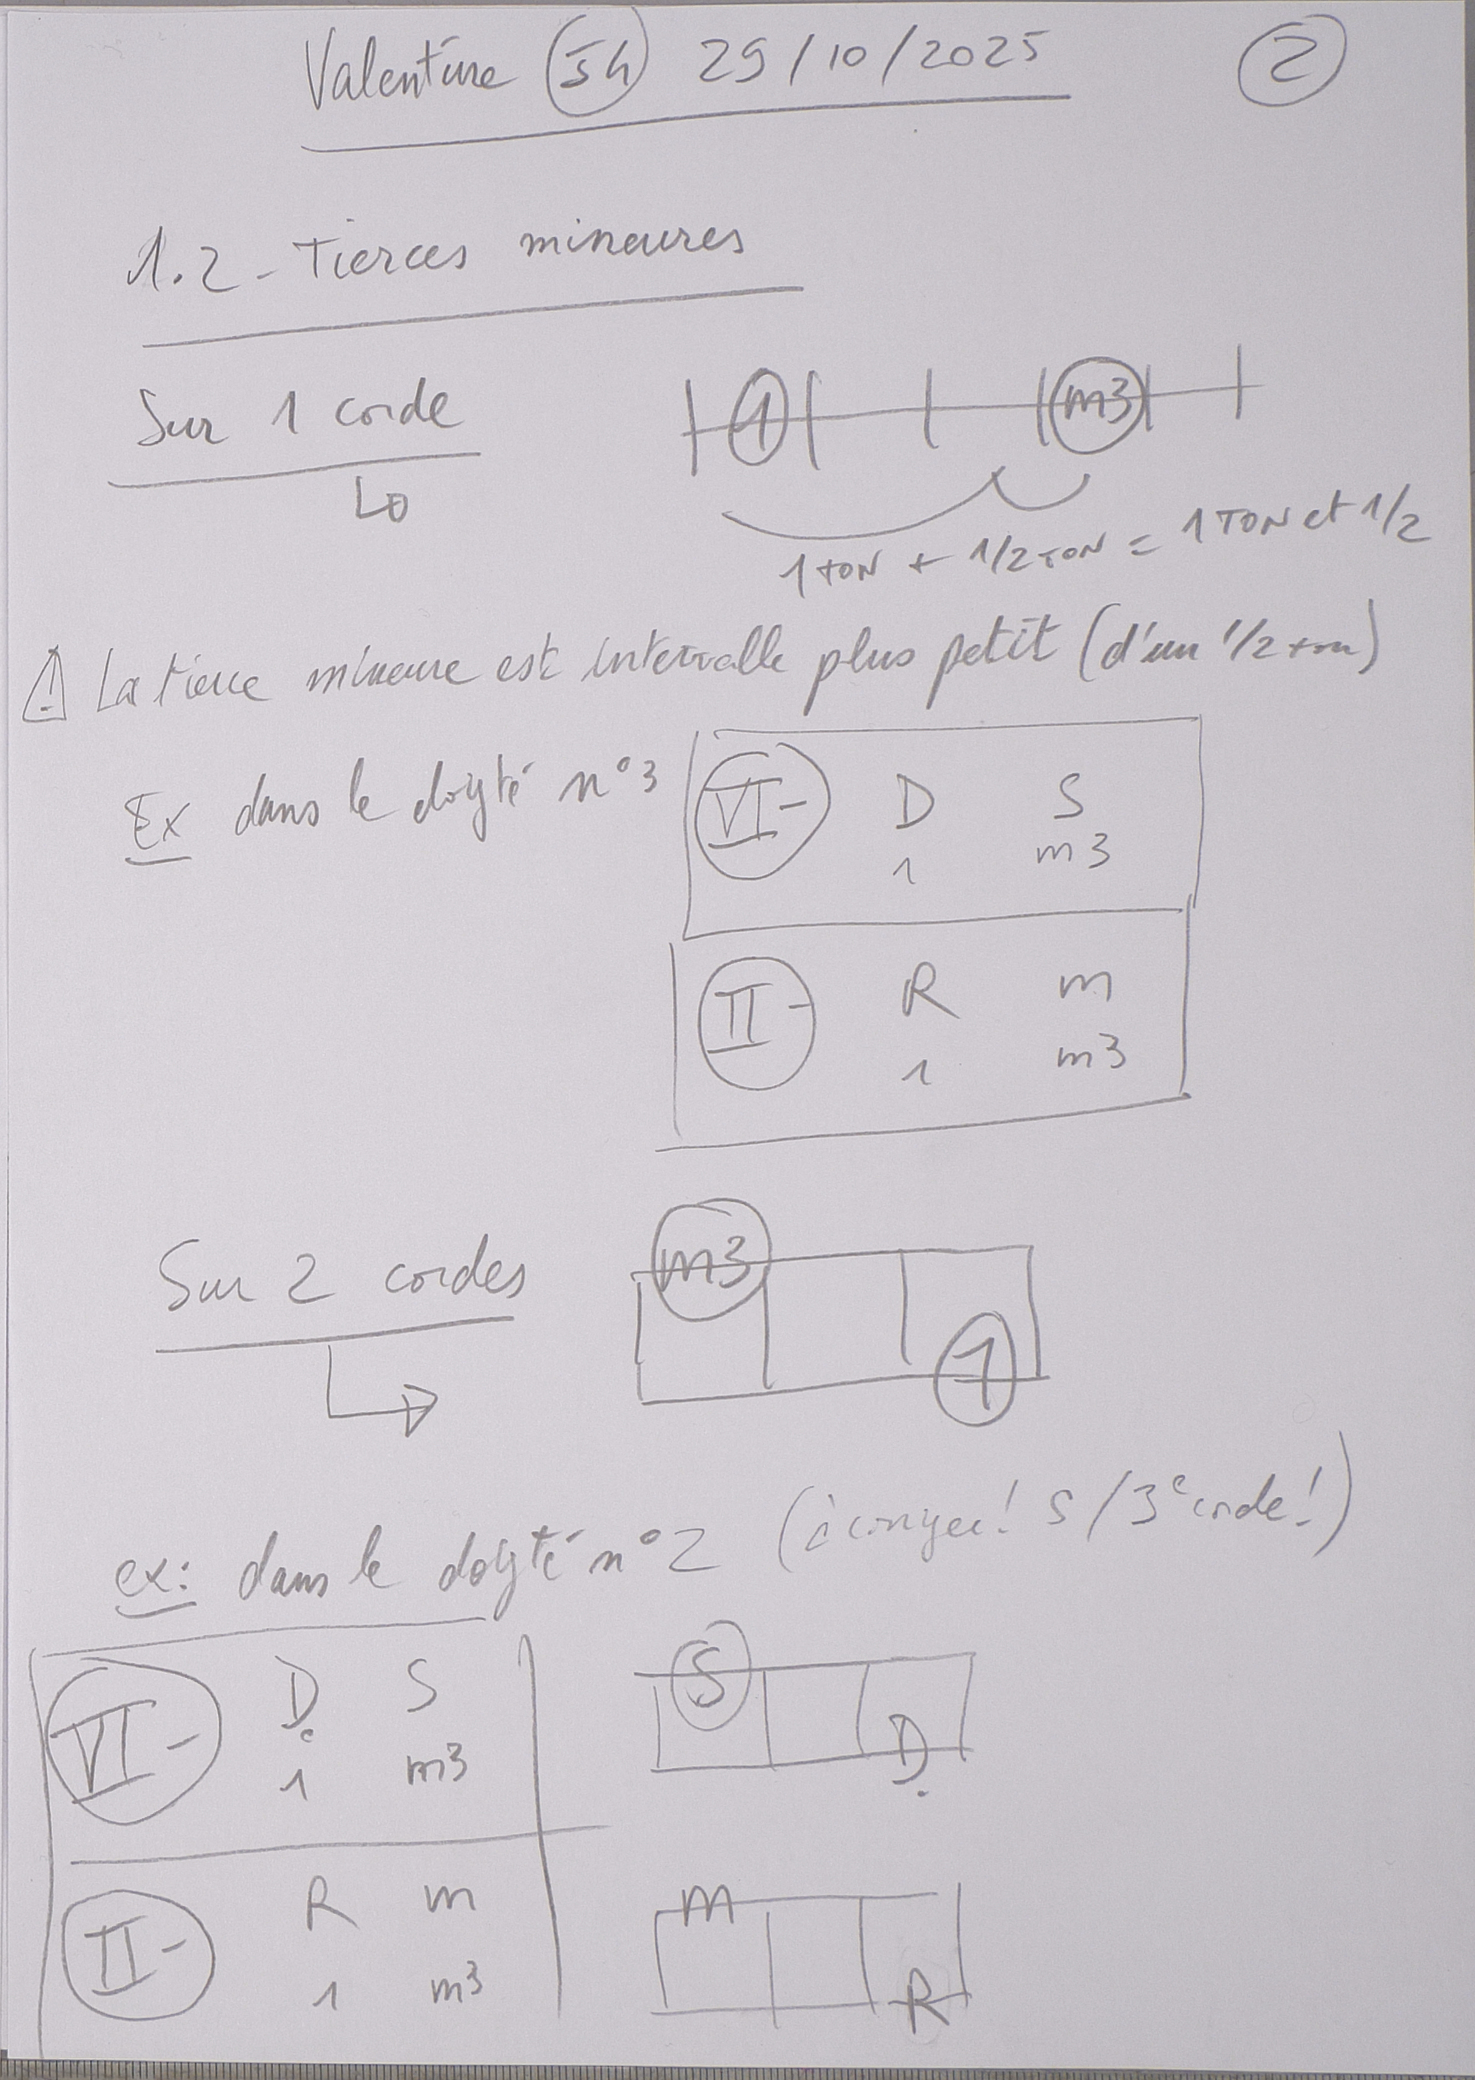 Valentine 5h 29/10/2025 2
1.2 - Tierces mineures
Sur 1 corde
1 m3
1 TON + 1/2 TON = 1 TON et 1/2
! La tierce mineure est intervalle plus petit (d'un 1/2 ton)
Ex dans le doigté n°3
VI- D S
1 m3
II- R m
1 m3
Sur 2 cordes
m3
1
ex: dans le doigté n°2 (à corriger! S/3e corde!)
VI- D S
1 m3
S
D
II- R m
1 m3
m
R